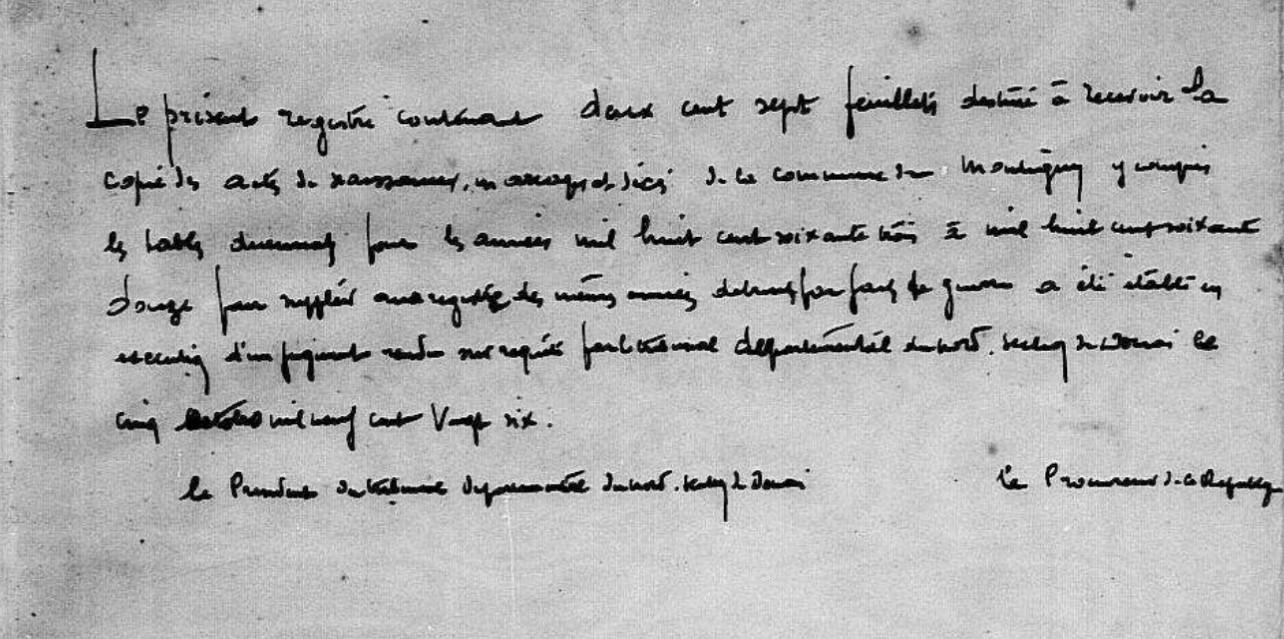 Le présent registre contenant deux cent sept feuillets destiné à recevoir la
copie des actes de naissances, mariages et décès de la commune de Montigny y compris
les tables décennales pour les années mil huit cent soixante trois à mil huit cent soixante
douze pour suppléer aux registres des mêmes années détruits par faits de guerre a été établi en
exécution d'un jugement rendu sur requête par le tribunal départemental du nord. section de Douai le
cinq octobre mil neuf cent Vingt six.
le Président du tribunal départemental du nord. section de Douai
le Procureur de la République